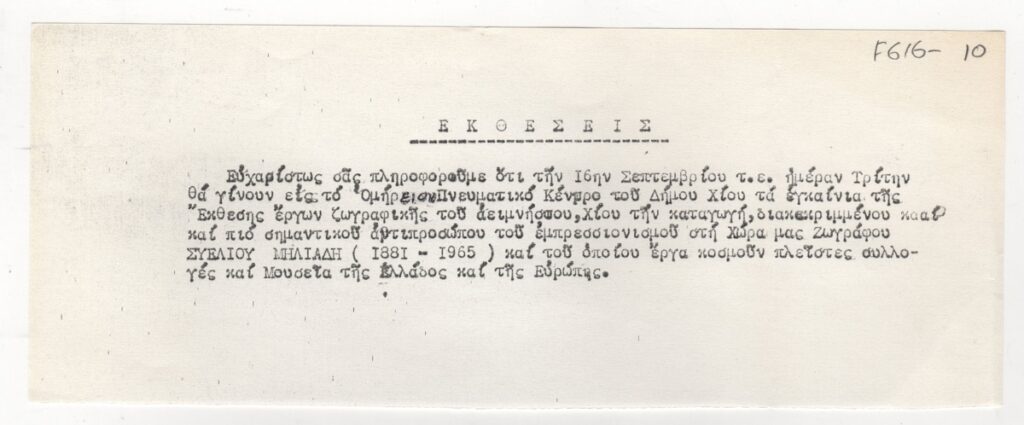 F616- 10
Ε Κ Θ Ε Σ Ε Ι Σ
Εὐχαρίστως σᾶς πληροφοροῦμε ὅτι τήν 16ην Σεπτεμβρίου τ.ε. ἡμέραν Τρίτην
θά γίνουν εἰς τό Ὁμήρειον Πνευματικό Κέντρο τοῦ Δήμου Χίου τά ἐγκαίνια τῆς
Ἔκθεσης ἔργων ζωγραφικῆς τοῦ ἀειμνήστου, Χίου τήν καταγωγή, διακεκριμμένου κααί
καί πιό σημαντικοῦ ἀντιπροσώπου τοῦ ἐμπρεσσιονισμοῦ στή Χώρα μας Ζωγράφου
ΣΥΕΛΙΟΥ ΜΗΛΙΑΔΗ ( 1881 - 1965 ) καί τοῦ ὁποίου ἔργα κοσμοῦν πλεῖστες συλλο-
γές καί Μουσεῖα τῆς Ἑλλάδος καί τῆς Εὐρώπης.